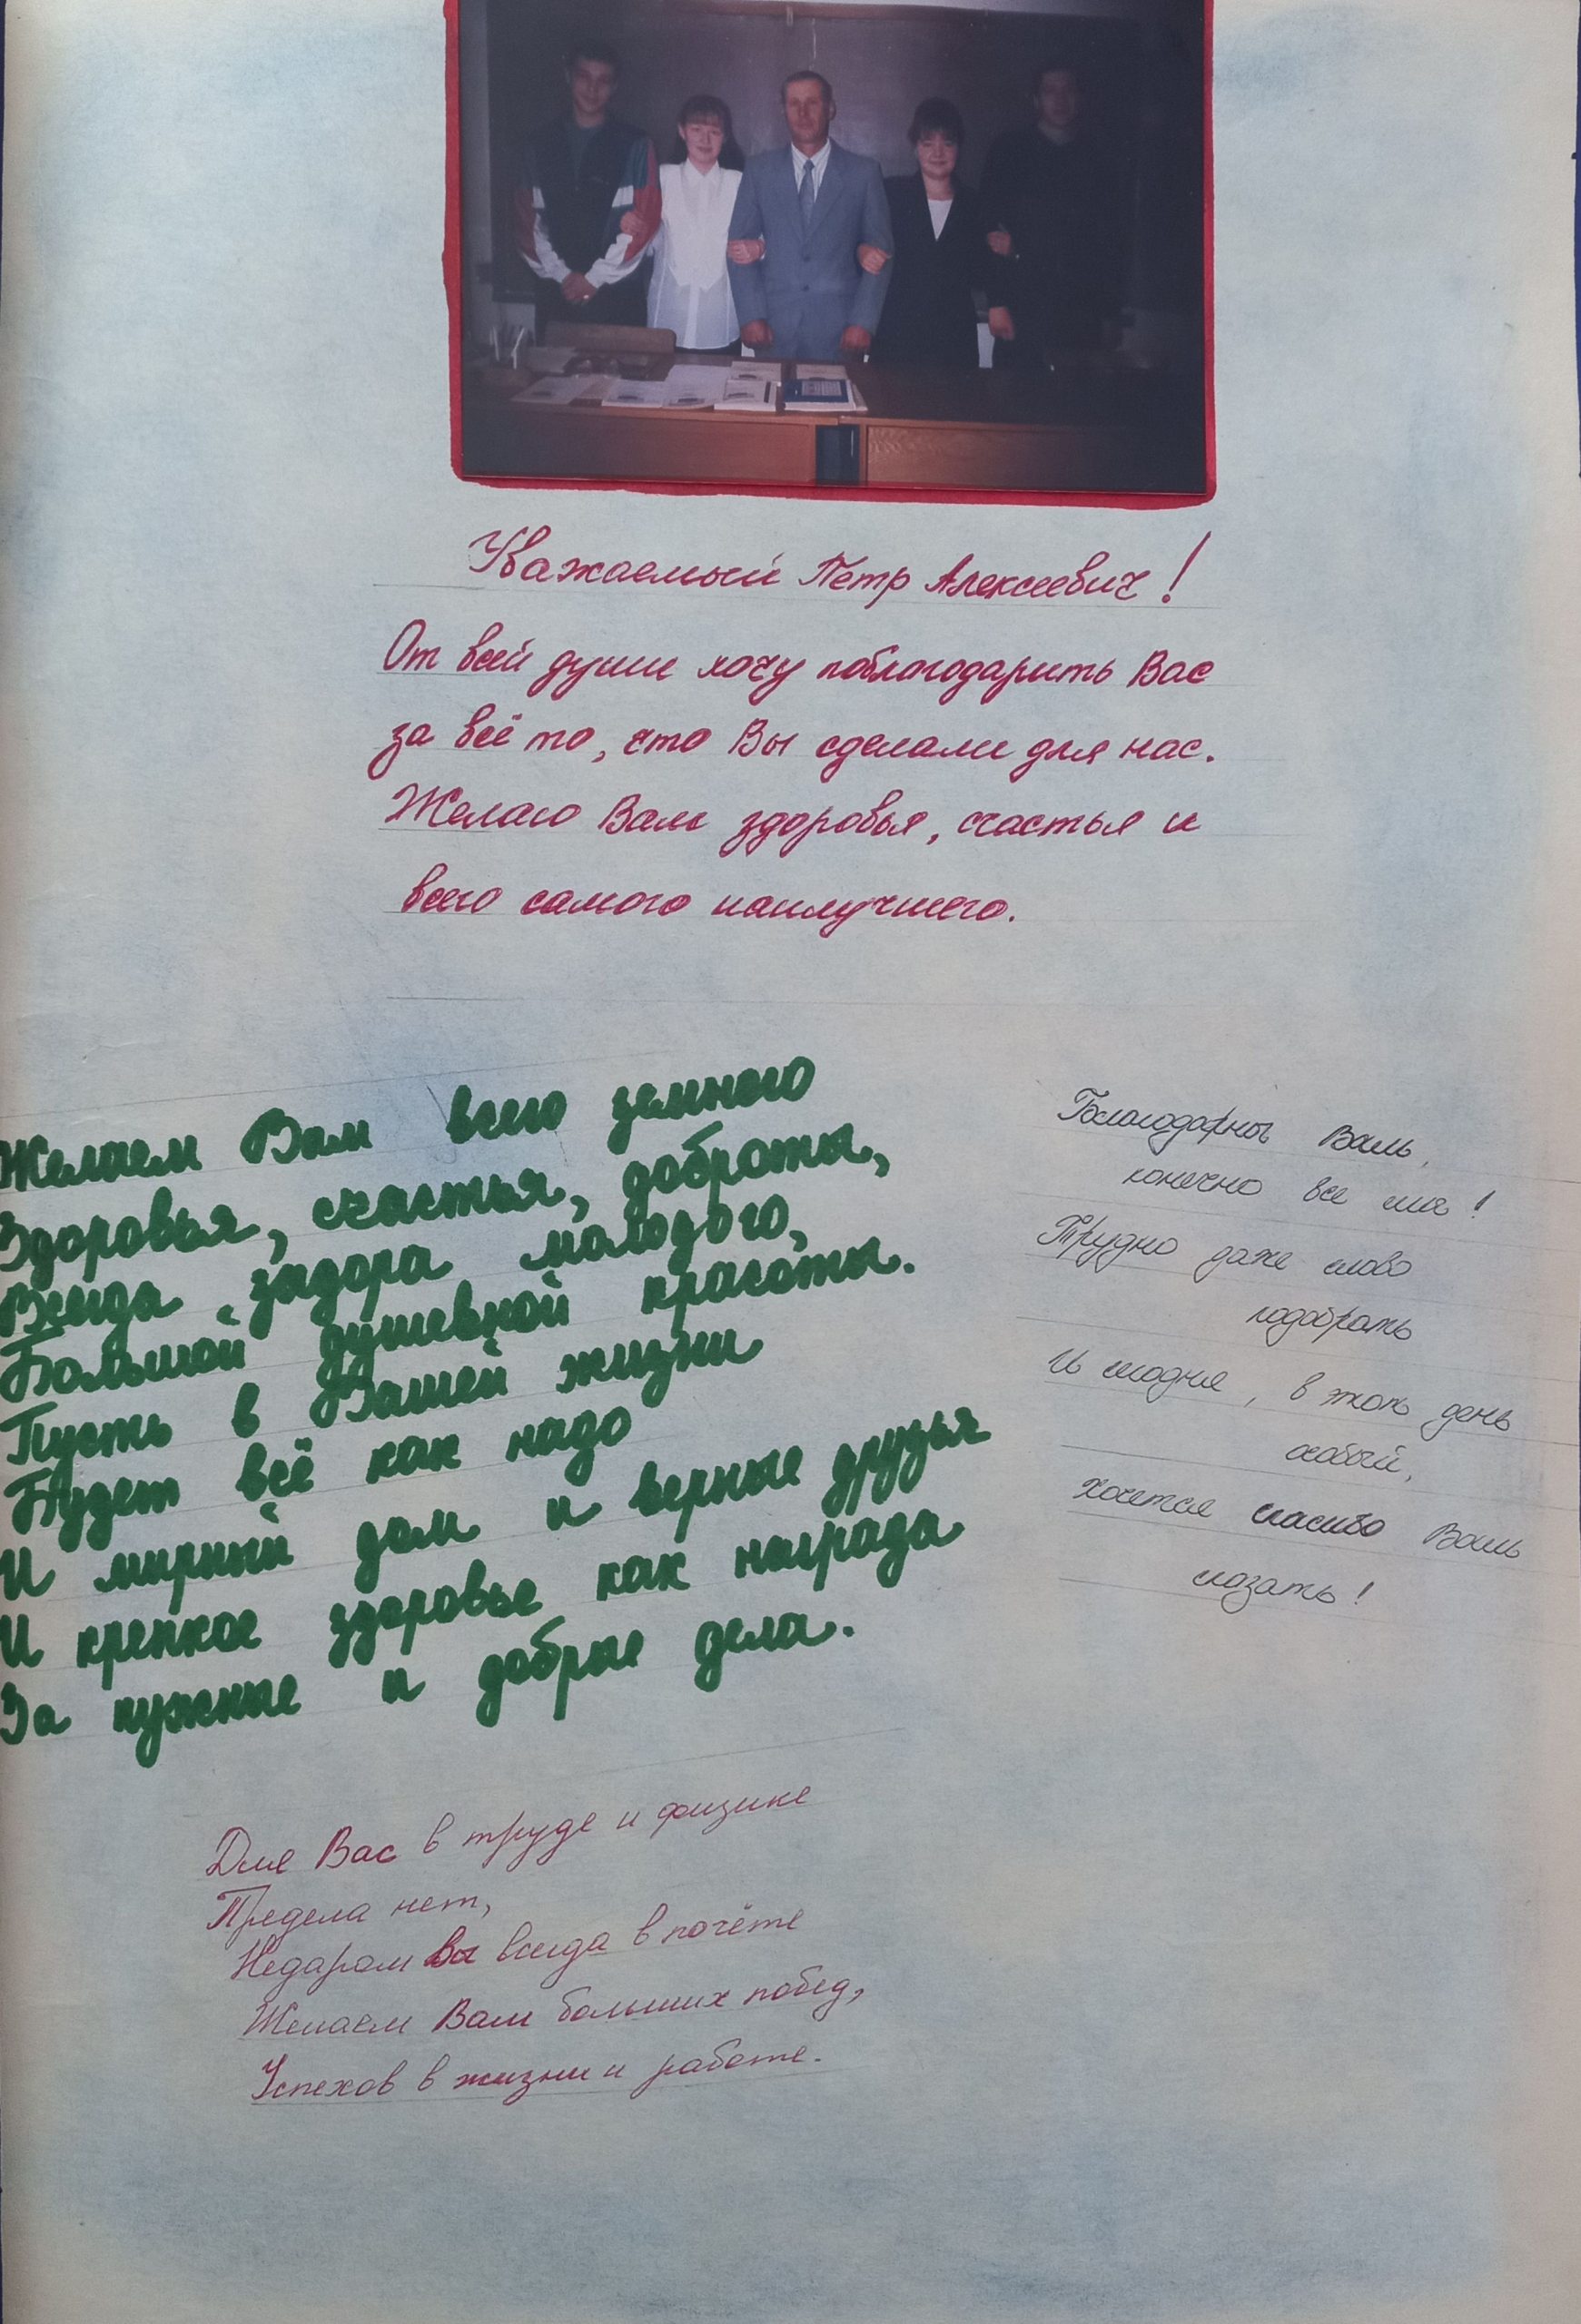 Уважаемый Петр Алексеевич!
От всей души хочу поблагодарить Вас
за всё то, что Вы сделали для нас.
Желаю Вам здоровья, счастья и
всего самого наилучшего.
Желаем Вам всего земного
Здоровья, счастья, доброты,
Всегда задора молодого,
Большой душевной красоты.
Пусть в Вашей жизни
Будет всё как надо
И мирный дом и верные друзья
И крепкое здоровье как награда
За нужные и добрые дела.
Благодарны Вам,
конечно все мы!
Трудно даже слово
подобрать
И сегодня, в этот день
особый,
хочется спасибо Вам
сказать!
Для Вас в труде и физике
Предела нет,
Недаром вы всегда в почёте
Желаем Вам больших побед,
Успехов в жизни и работе.